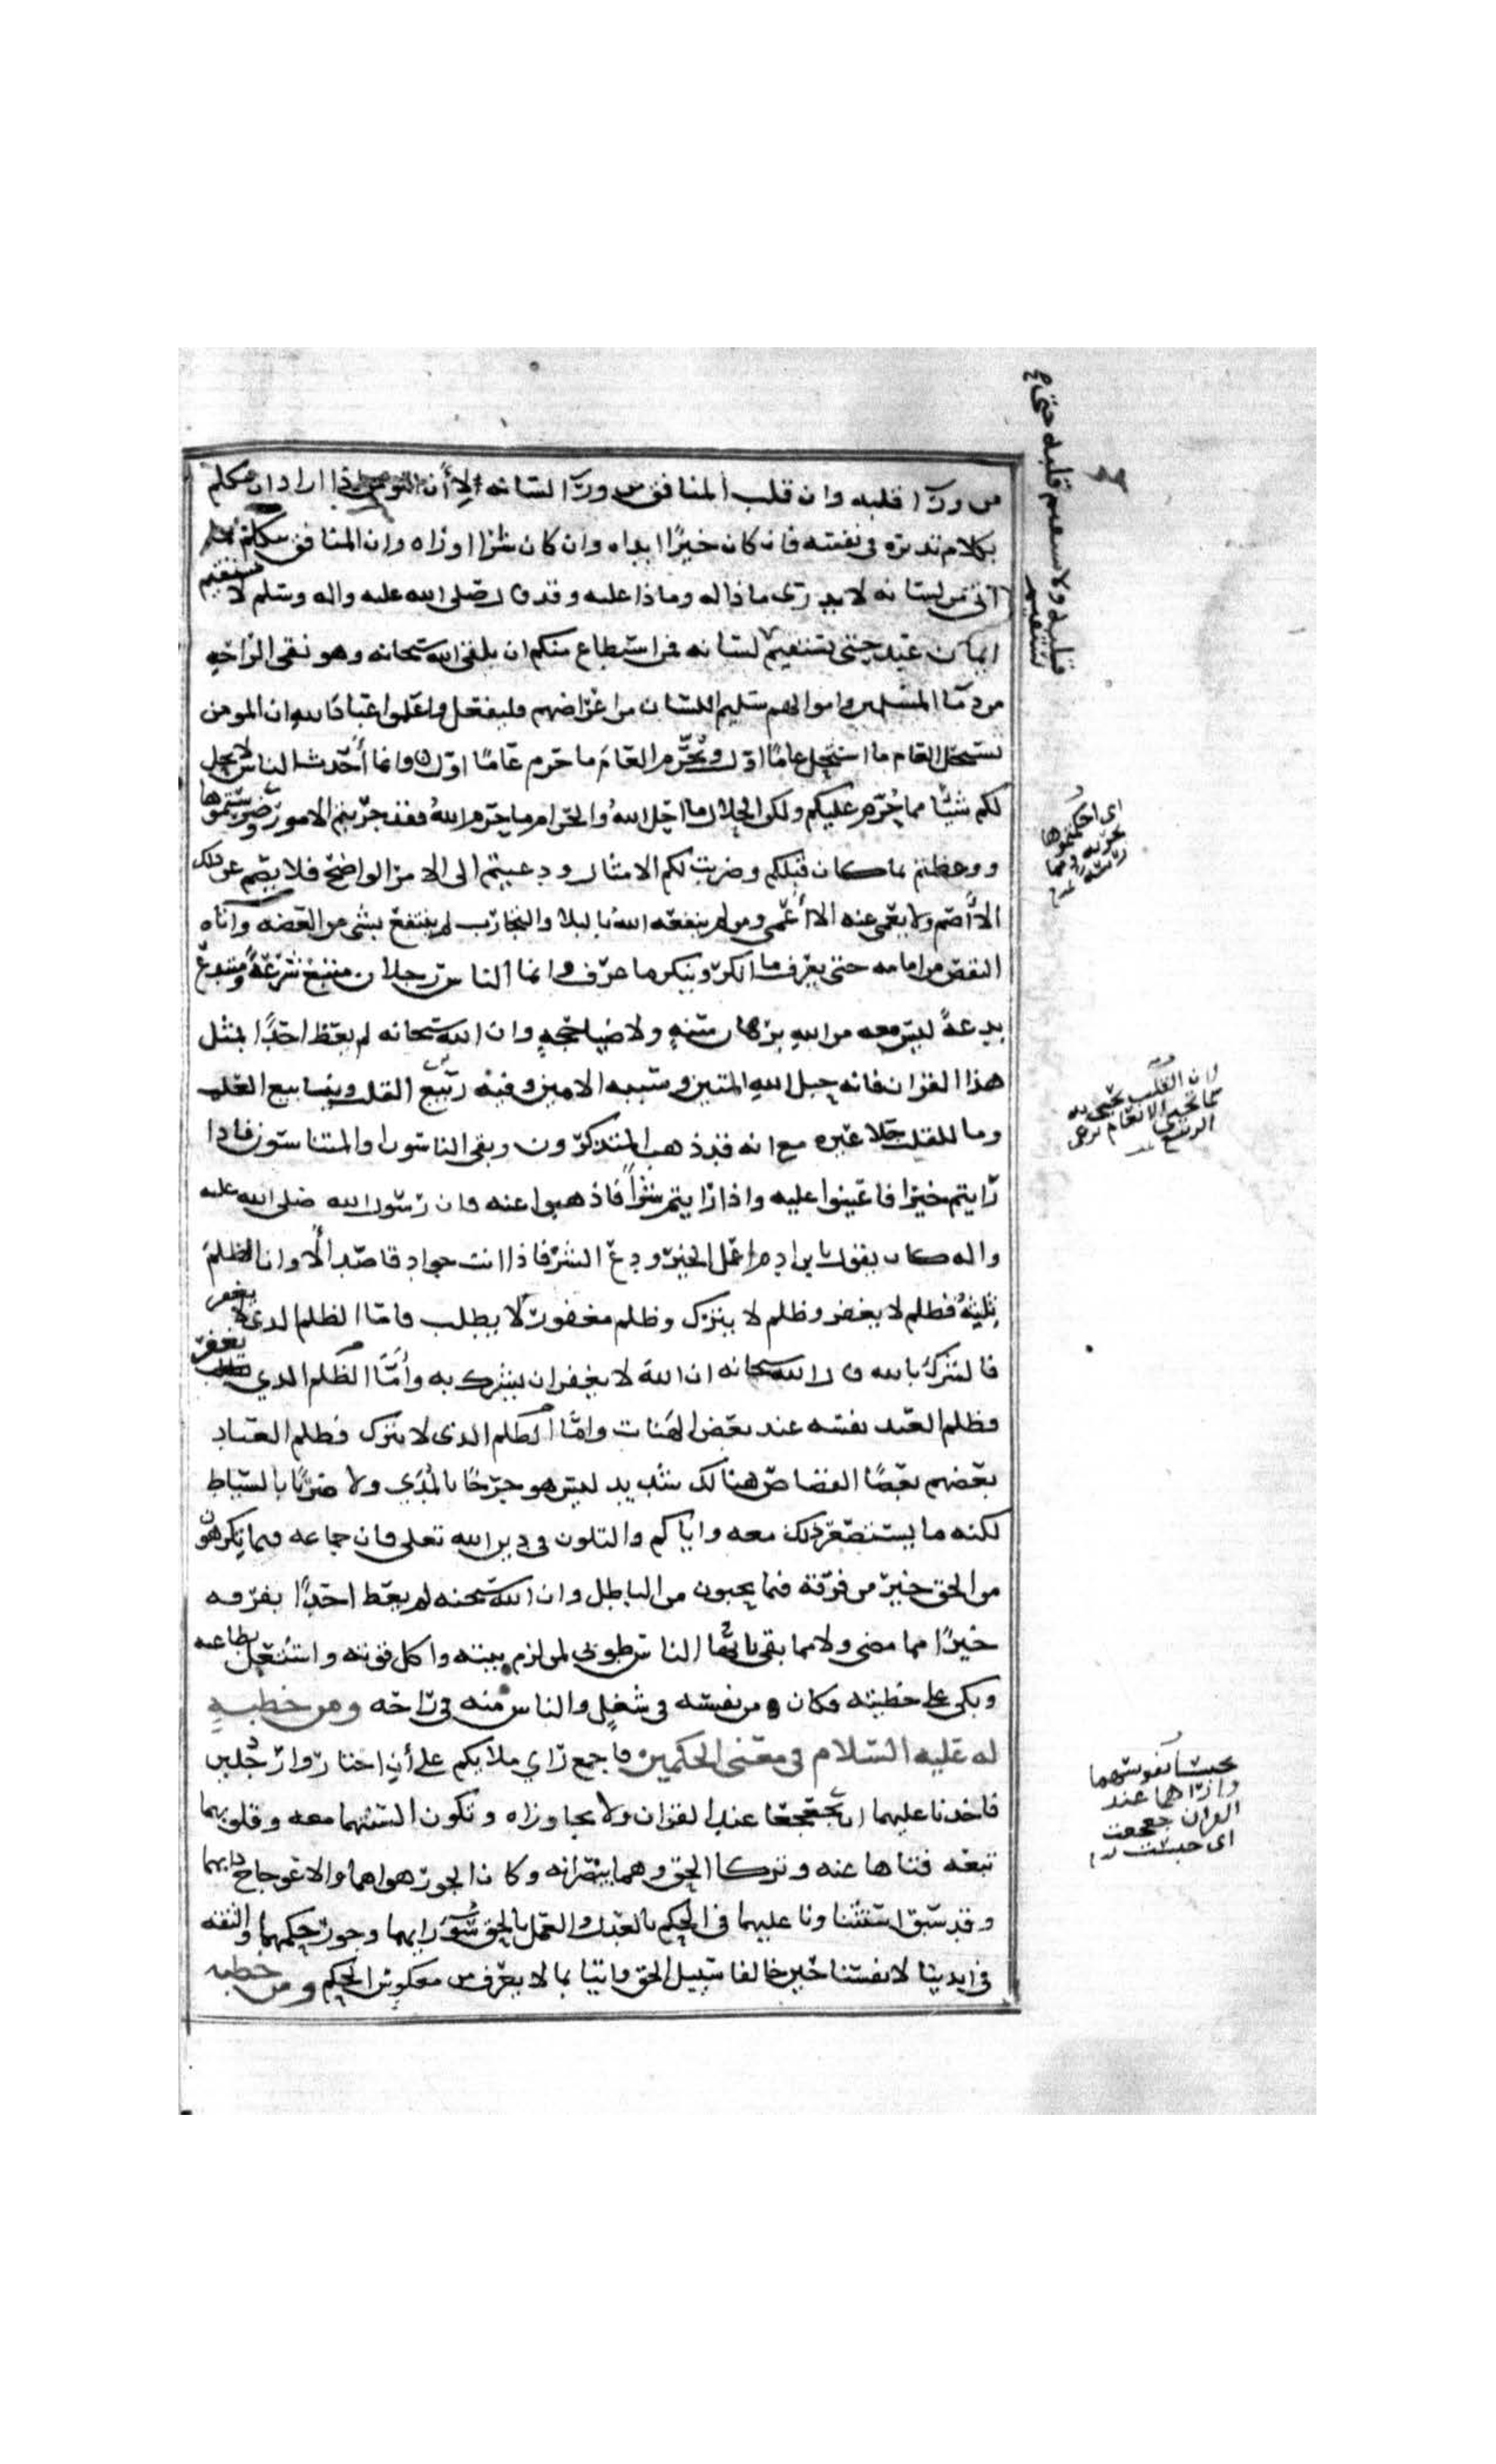 من ورآ قلبه وان قلب المنافق من ورآ لسانه لان المومن اذا اراد ان يتكلم
بكلام تدبره في نفسه فان كان خيرًا ابداه وان كان شرا اوراه وان المنافق يتكلم بما
اتى على لسانه لا يدرى ماذا له وماذا عليه وقد قال صلى الله عليه واله وسلم لا يستقيم
ايمان عبد حتى يستقيم لسانه فمن استطاع منكم ان يلقى الله سبحانه وهو نقى الراحه
من دمآ المسلمين واموالهم سليم اللسان من اعراضهم فليفعل واعلموا عباد الله ان المومن
يستحل العام ما استحل عامًا اول ويحرّم العام ما حرم عامًا اول وان ما أحدث الناس لا يحل
لكم شيئًا مما حُرّم عليكم ولكن الحلال ما احل اللهُ والحرام ما حرم اللهُ فقد جربتم الامور وضرستموها
ووعظتم بما كان قبلكم وضربت لكم الامثال ودعيتم الى الامر الواضح فلا يصم عن ذلك
الا أصم ولا يعمى عنه الا أعمى ومن لم ينفعه الله بالبلا والتجارب لم ينتفع بشى من العضه واتاه
النقص من امامه حتى يعرف ما انكر وينكر ما عرف وانما الناس رجلان متبع شرعةً ومبتدع
بدعةً ليس معه من اللهِ برهان سنهٍ ولا ضيا حجهٍ وان الله سبحانه لم يعظ احدًا بمثل
هذا القران فانه حبل اللهِ المتين وسببه الامين وفيه ربيع القلب وينابيع العلم
وما للقلب جلا غيره مع انه قد ذهب المتذكرون وبقى الناسون او المتناسون فاذا
رايتم خيرا فاعينوا عليه واذا رايتم شرًا فاذهبوا عنه فان رسول الله صلى الله عليه
واله كان يقول يا بن ادم اعمل الخير ودع الشر فاذا انت جواد قاصد ألا وان الظلم
ثلثهٌ فظلم لا يغفر وظلم لا يترك وظلم مغفور لا يطلب فاما الظلم الدى لا يغفر
فالشرك بالله قال الله سبحانه ان الله لا يغفر ان يشرك به وأمّا الظلم الدي يغفر
فظلم العبد نفسه عند بعض الهنات وامّا الظلم الذى لا يترك فظلم العباد
بعضهم بعضًا القصاص هنالك شديد ليس هو جرحًا بالمُدَي ولا ضربًا بالسياط
لكنه ما يستصغر ذلك معه واياكم والتلون في دين الله تعلى فان جماعه فيما تكرهون
من الحق خير من فرقة فيما يحبون من الباطل وان الله سبحنه لم يعط احدًا بفرقه
خيرًا مما مضى ولا مما بقى يا أيّها الناس طوبى لمن لزم بيته واكل قوته واشتغل بطاعه
وبكى على خطيته فكان من نفسه في شغلٍ والناس منه في راحه ومن خطبهٍ
له عليه السلام في معنى الحكمين فاجمع راي ملايكم على أن اختاروا رجُلين
فاخذنا عليهما ان يجعجعا عند القران ولا يجاوزاه وتكون السنهما معه وقلوبهما
تبعه فتاها عنه وتركا الحق وهما يبصرانه وكان الجور هواهما والاعوجاج دابهما
وقد سبق استثناونا عليهما في الحكم بالعدل والعمل بالحق سُوَ رايهما وجور حكمهما والثقه
في ايدينا لانفسنا حين خالفا سبيل الحق واتيا بما لا يعرف من معكوس الحكم ومن خطبه
قلبه ولا يستقيم قلبه حتى
اى احكمتموها
تجربه
لان القلب يحيى به
كما تحيى الانعام برعى
الربيع
يحبسا نفوسهما
واراهما عند
القران جعجعت
اى حبست